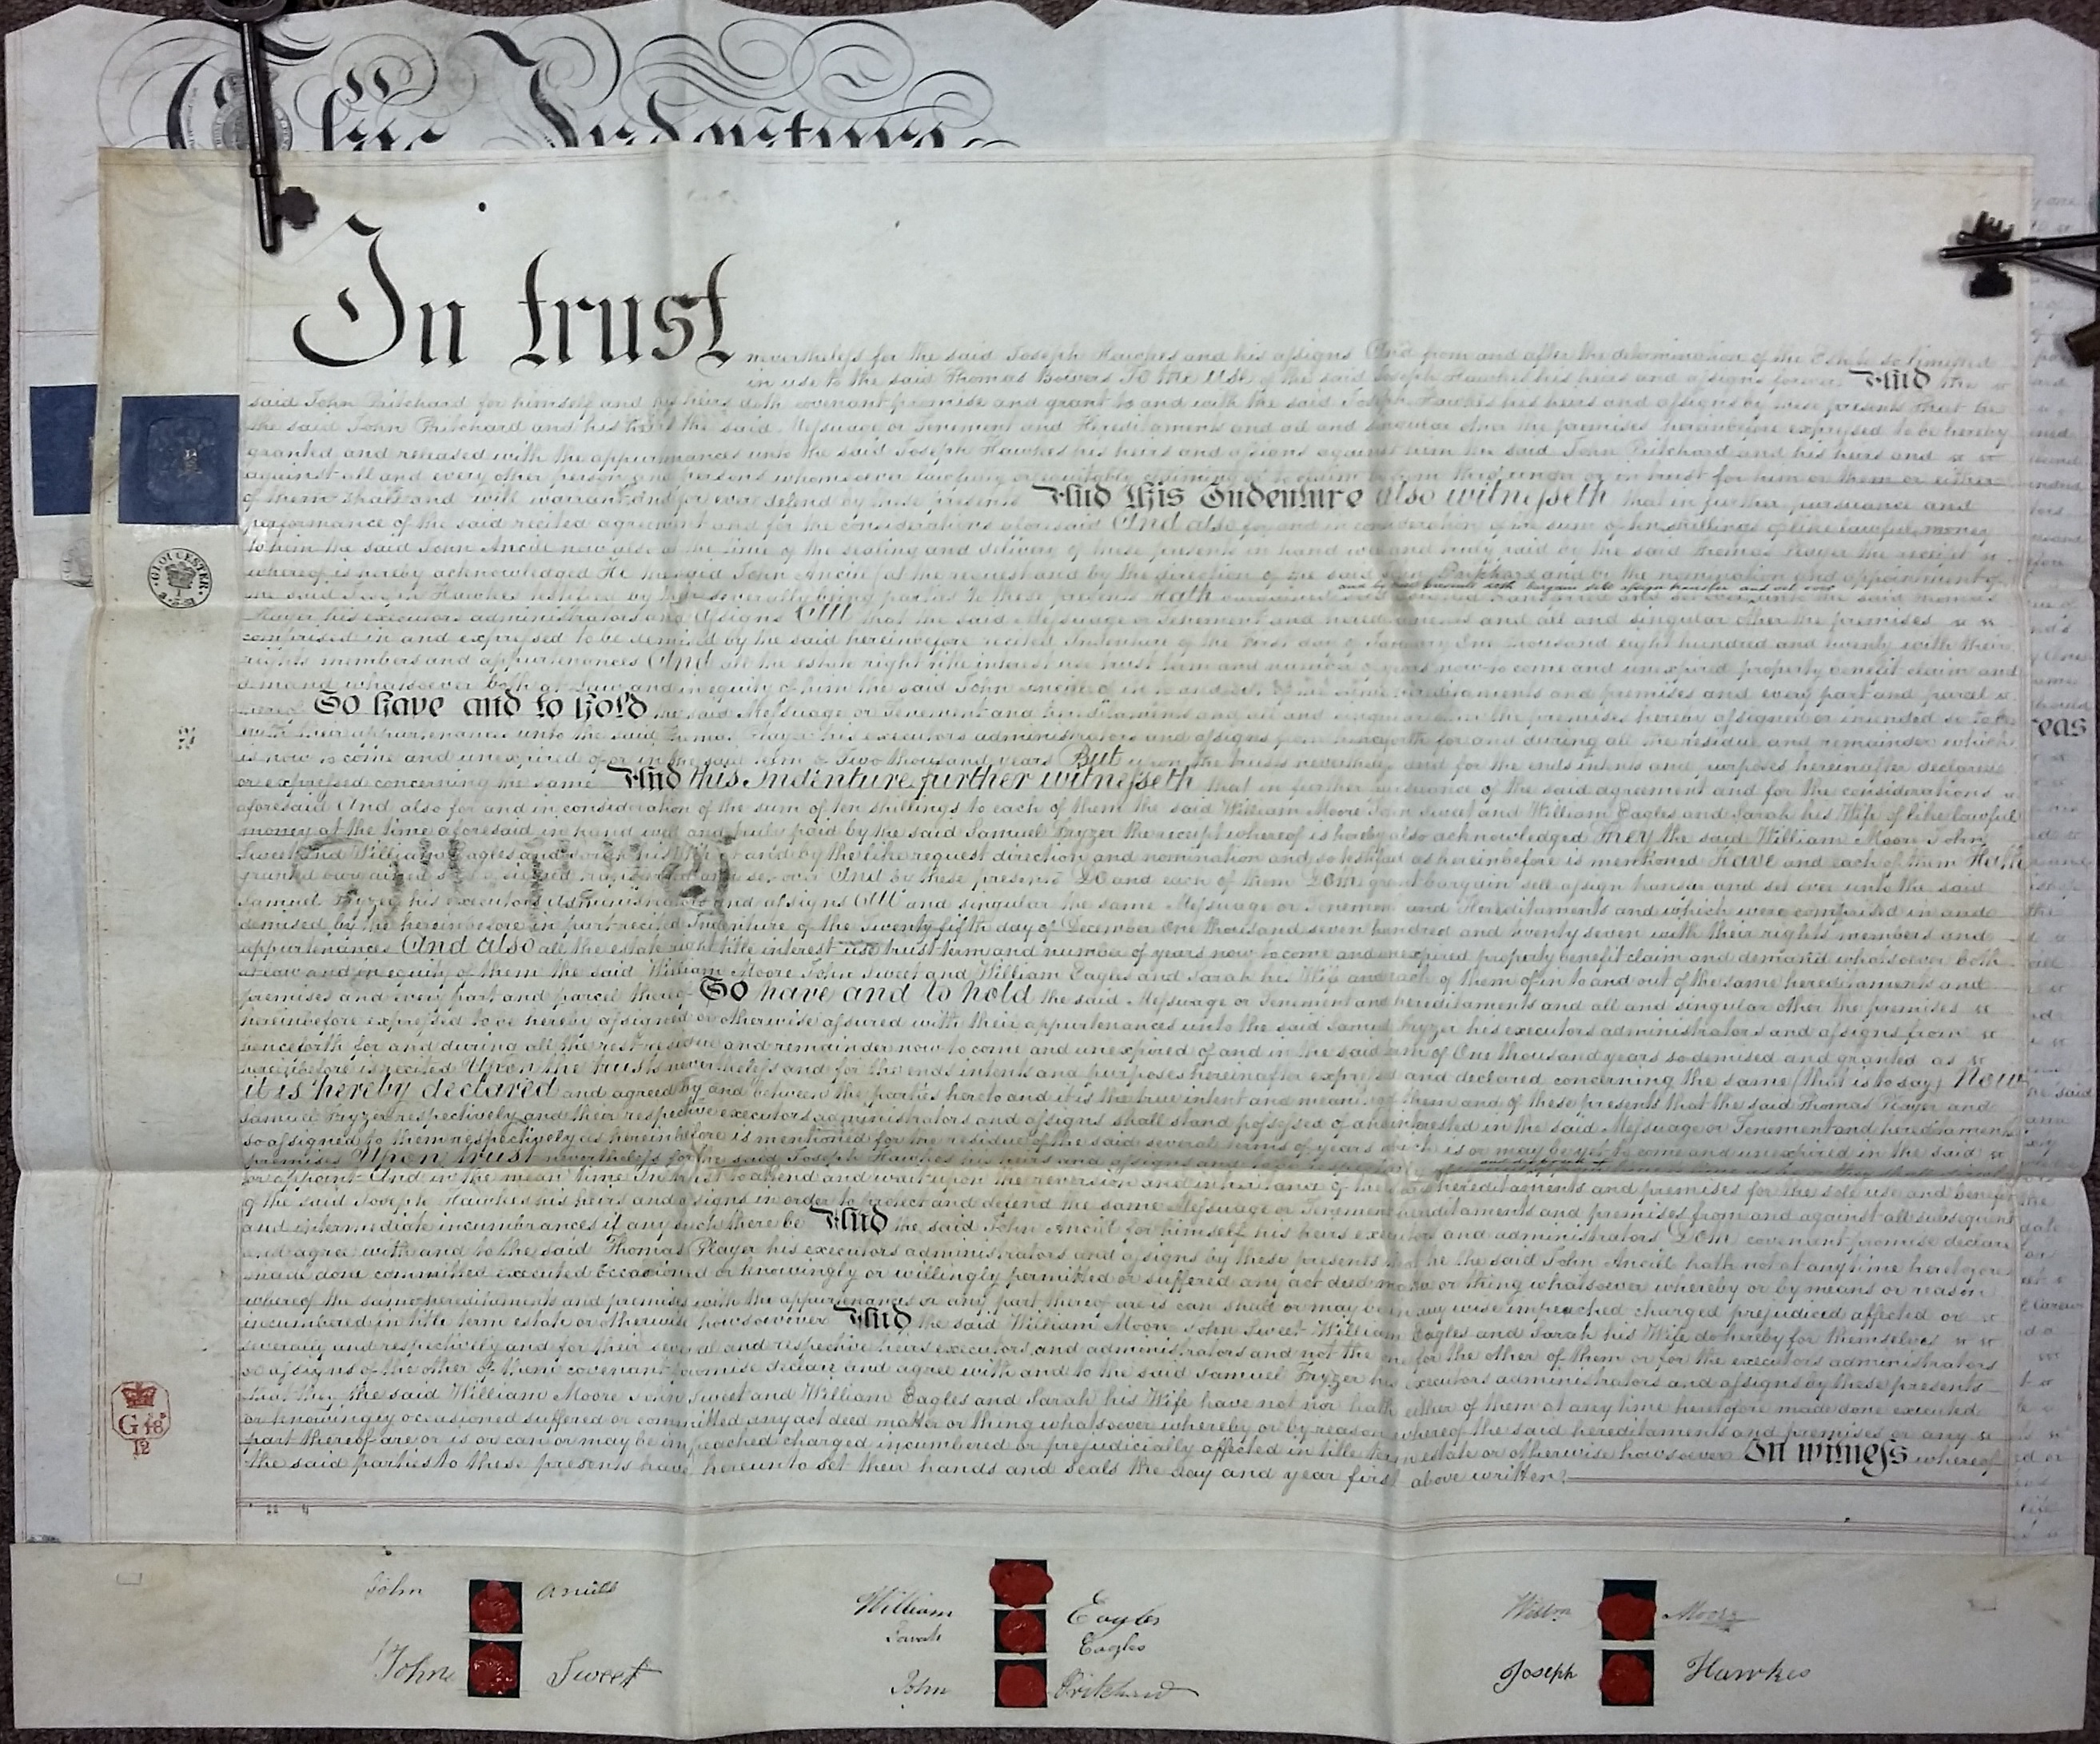 This Indenture
In trust nevertheless for the said Joseph Hawkes and his assigns And from and after the determination of the Estate so limited
in use to the said Thomas Bowers To the use of the said Joseph Hawkes his heirs and assigns forever And the
said John Pritchard for himself and his heirs doth covenant promise and grant to and with the said Joseph Hawkes his heirs and assigns by these presents that he
the said John Pritchard and his heirs the said Messuage or Tenement and Hereditaments and all and singular other the premises hereinbefore expressed to be hereby
granted and released with the appurtenances unto the said Joseph Hawkes his heirs and assigns against him the said John Pritchard and his heirs and
against all and every other person and persons whomsoever lawfully or equitably claiming or to claim by from through under or in trust for him or them or either
of them shall and will warrant and for ever defend by these presents And this Indenture also witnesseth that in further pursuance and
performance of the said recited agreement and for the considerations aforesaid And also for and in consideration of the sum of ten shillings of like lawful money
to him the said John Ancill now also at the time of the sealing and delivery of these presents in hand well and truly paid by the said Thomas Player the receipt
whereof is hereby acknowledged He the said John Ancill (at the request and by the direction of the said John Pritchard and by the nomination and appointment of
and by these presents doth bargain sell assign transfer and set over
the said Joseph Hawkes testified by their severally being parties to these presents Hath bargained sold assigned transferred and set over unto the said Thomas
Player his executors administrators and assigns All that the said Messuage or Tenement and hereditaments and all and singular other the premises
comprised in and expressed to be demised by the said hereinbefore recited Indenture of the First day of January One thousand eight hundred and twenty with their
rights members and appurtenances And all the estate right title interest use trust term and number of years now to come and unexpired property benefit claim and
demand whatsoever both at Law and in equity of him the said John Ancill of in to and out of the same hereditaments and premises and every part and parcel
thereof To have and to hold the said Messuage or Tenement and hereditaments and all and singular other the premises hereby assigned or intended so to be
with their appurtenances unto the said Thomas Player his executors administrators and assigns from henceforth for and during all the residue and remainder which
is now to come and unexpired of or in the said term of Two thousand years But upon the trusts nevertheless and for the ends intents and purposes hereinafter declared
or expressed concerning the same And this Indenture further witnesseth that in further pursuance of the said agreement and for the considerations
aforesaid And also for and in consideration of the sum of ten shillings to each of them the said William Moore John Sweet and William Eagles and Sarah his Wife of like lawful
money at the time aforesaid in hand well and truly paid by the said Samuel Fryzer the receipt whereof is hereby also acknowledged They the said William Moore John
Sweet and William Eagles and Sarah his Wife and by the like request direction and nomination and so testified as hereinbefore is mentioned Have and each of them Hath
granted bargained sold assigned transferred and set over And by these presents Do and each of them Doth grant bargain sell assign transfer and set over unto the said
Samuel Fryzer his executors administrators and assigns All and singular the same Messuage or Tenement and Hereditaments and which were comprised in and
demised by the hereinbefore in part recited Indenture of the Twenty fifth day of December One thousand seven hundred and twenty seven with their rights members and
appurtenances And also all the estate right title interest use trust term and number of years now to come and unexpired property benefit claim and demand whatsoever both
at law and in equity of them the said William Moore John Sweet and William Eagles and Sarah his Wife and each of them of in to and out of the same hereditaments and
premises and every part and parcel thereof To have and to hold the said Messuage or Tenement and hereditaments and all and singular other the premises
hereinbefore expressed to be hereby assigned or otherwise assured with their appurtenances unto the said Samuel Fryzer his executors administrators and assigns from
henceforth for and during all the rest residue and remainder now to come and unexpired of and in the said term of One thousand years so demised and granted as
hereinbefore is recited Upon the trusts nevertheless and for the ends intents and purposes hereinafter expressed and declared concerning the same (that is to say) Now
it is hereby declared and agreed by and between the parties hereto and it is the true intent and meaning of them and of these presents that the said Thomas Player and
Samuel Fryzer respectively and their respective executors administrators and assigns shall stand possessed of and interested in the said Messuage or Tenement and hereditaments
so assigned to them respectively as hereinbefore is mentioned for the residue of the said several terms of years which is or may be yet to come and unexpired in the said
premises Upon trust nevertheless for the said Joseph Hawkes his heirs and assigns and to be
or appoint And in the mean time In trust to attend and wait upon the reversion and inheritance of the said hereditaments and premises for the sole use and benefit
of the said Joseph Hawkes his heirs and assigns in order to protect and defend the same Messuage or Tenement hereditaments and premises from and against all subsequent
and intermediate incumbrances if any such there be And the said John Ancill for himself his heirs executors and administrators Doth covenant promise declare
and agree with and to the said Thomas Player his executors administrators and assigns by these presents that he the said John Ancill hath not at any time heretofore
made done committed executed occasioned or knowingly or willingly permitted or suffered any act deed matter or thing whatsoever whereby or by means or reason
whereof the same hereditaments and premises with the appurtenances or any part thereof are is can shall or may be in any wise impeached charged prejudiced affected or
incumbered in title term estate or otherwise howsoever And the said William Moore John Sweet William Eagles and Sarah his Wife do hereby for themselves
severally and respectively and for their several and respective heirs executors and administrators and not the one for the other of them or for the executors administrators
or assigns of the other of them covenant promise declare and agree with and to the said Samuel Fryzer his executors administrators and assigns by these presents
that they the said William Moore John Sweet and William Eagles and Sarah his Wife have not nor hath either of them at any time heretofore made done executed
or knowingly occasioned suffered or committed any act deed matter or thing whatsoever whereby or by reason whereof the said hereditaments and premises or any
part thereof are or is or can or may be impeached charged incumbered or prejudicially affected in title term estate or otherwise howsoever In witness whereof
the said parties to these presents have hereunto set their hands and seals the day and year first above written
GLOUCESTER
G 18
12
John Ancill
John Sweet
William Eagles
Sarah Eagles
John Pritchard
Willm Moore
Joseph Hawkes